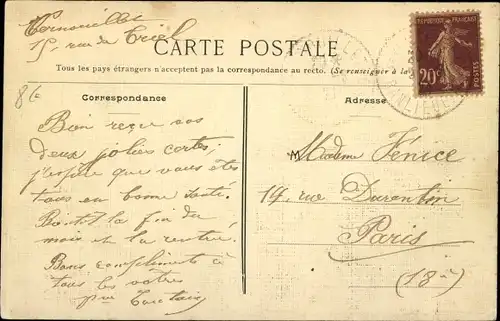 15, rue du Triel
CARTE POSTALE
Tous les pays étrangers n'acceptent pas la correspondance au recto. (Se renseigner à la
REPUBLIQUE FRANÇAISE
20c
POSTES
8€
Correspondance
Adresse
Bien reçu vos
deux jolies cartes,
j'espère que vous êtes
tous en bonne santé.
Bientôt la fin du
mois et la rentrée.
Bons compliments à
tous les votres
Madame Fénice
14, rue Durantin
Paris
(18e)